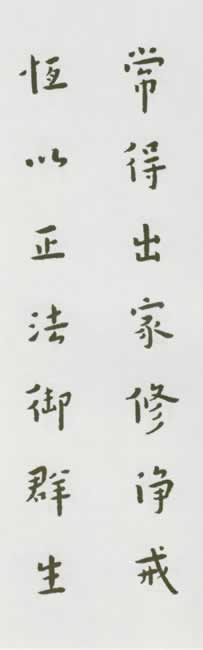 常得出家修净戒
恆以正法御群生